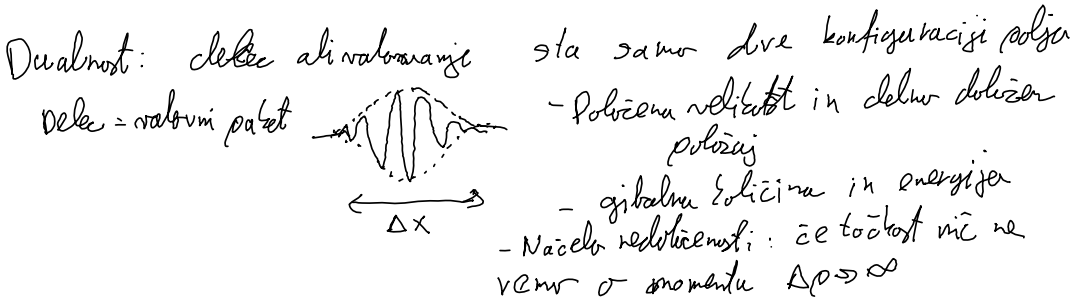 Dualnost: delec ali valovanje sta samo dve konfiguraciji polja
Delec = valovni paket
Δx
- Določena velikost in delno določen
položaj
- gibalna količina in energija
- Načelo nedoločenosti: če točkast nič ne
vemo o momentu Δp → ∞